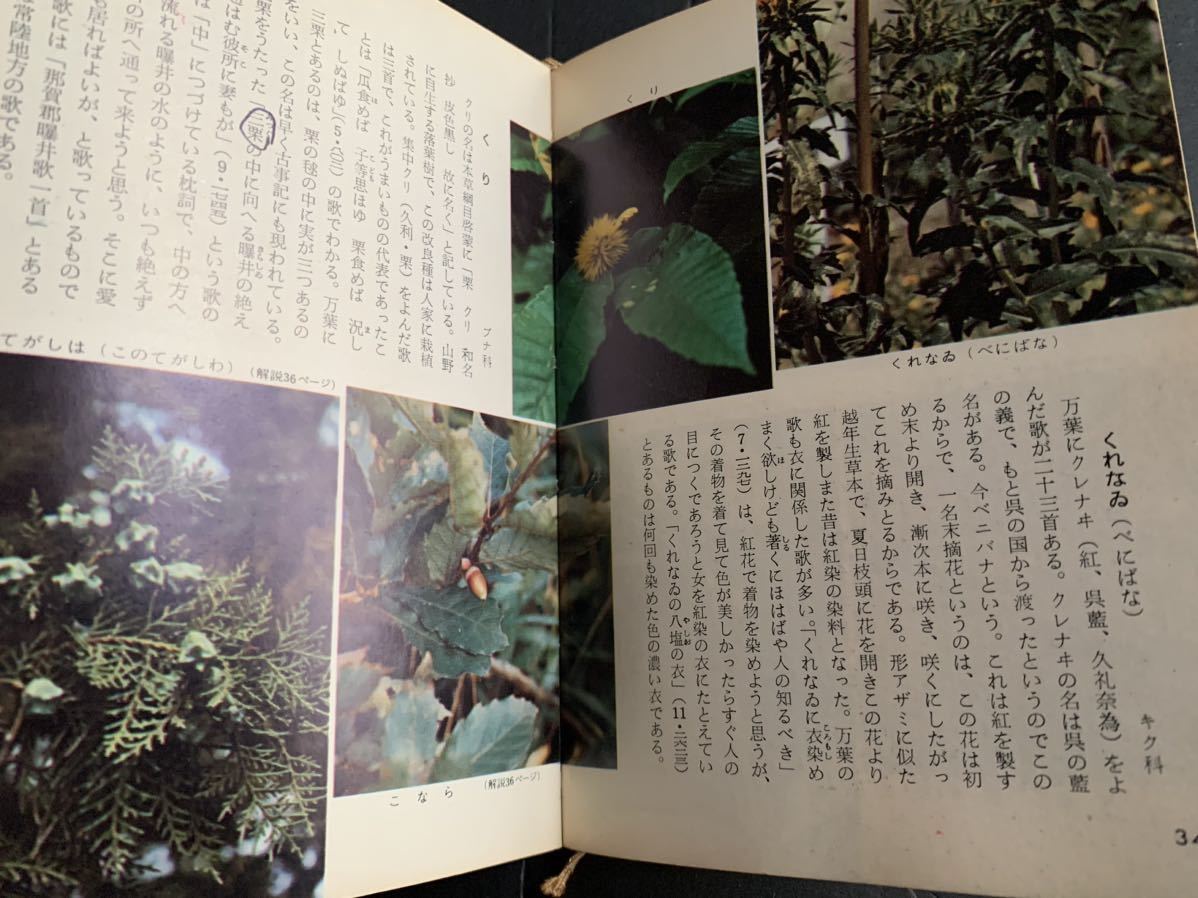 くれなゐ（べにばな）
くれなゐ（べにばな）
キク科
万葉にクレナヰ（紅、呉藍、久礼奈為）をよ
んだ歌が二十三首ある。クレナヰの名は呉の藍
の義で、もと呉の国から渡ったというのでこの
名がある。今ベニバナという。これは紅を製す
るからで、一名末摘花というのは、この花は初
め末より開き、漸次本に咲き、咲くにしたがっ
てこれを摘みとるからである。形アザミに似た
越年生草本で、夏日枝頭に花を開きこの花より
紅を製しまた昔は紅染の染料となった。万葉の
歌も衣に関係した歌が多い。「くれなゐに衣染め
まく欲しけども著くにほはばや人の知るべき」
（7・一二九七）は、紅花で着物を染めようと思うが、
その着物を着て見て色が美しかったらすぐ人の
目につくであろうと女を紅染の衣にたとえてい
る歌である。「くれなゐの八塩の衣」（11・二六二三）
とあるものは何回も染めた色の濃い衣である。
くり
くり
ブナ科
クリの名は本草綱目啓蒙に「栗 クリ 和名
抄 皮色黒し 故に名く」と記している。山野
に自生する落葉樹で、この改良種は人家に栽植
されている。集中クリ（久利・栗）をよんだ歌
は三首で、これがうまいものの代表であったこ
とは「瓜食めば 子等思ほゆ 栗食めば 況し
て しぬばゆ」（5・八〇二）の歌でわかる。万葉に
三栗とあるのは、栗の毬の中に実が三つあるの
をいい、この名は早く古事記にも現われている。
栗をうたった「三栗の中に向へる曝井の絶え
ず通はむ彼所に妻もが」（9・一七四五）という歌の
は「中」につづけている枕詞で、中の方へ
流れる曝井の水のように、いつも絶えず
の所へ通って来ようと思う。そこに愛
も居ればよいが、と歌っているもので
歌には「那賀郡曝井歌一首」とある
常陸地方の歌である。
てがしは（このてがしわ）（解説36ページ）
こなら
（解説36ページ）